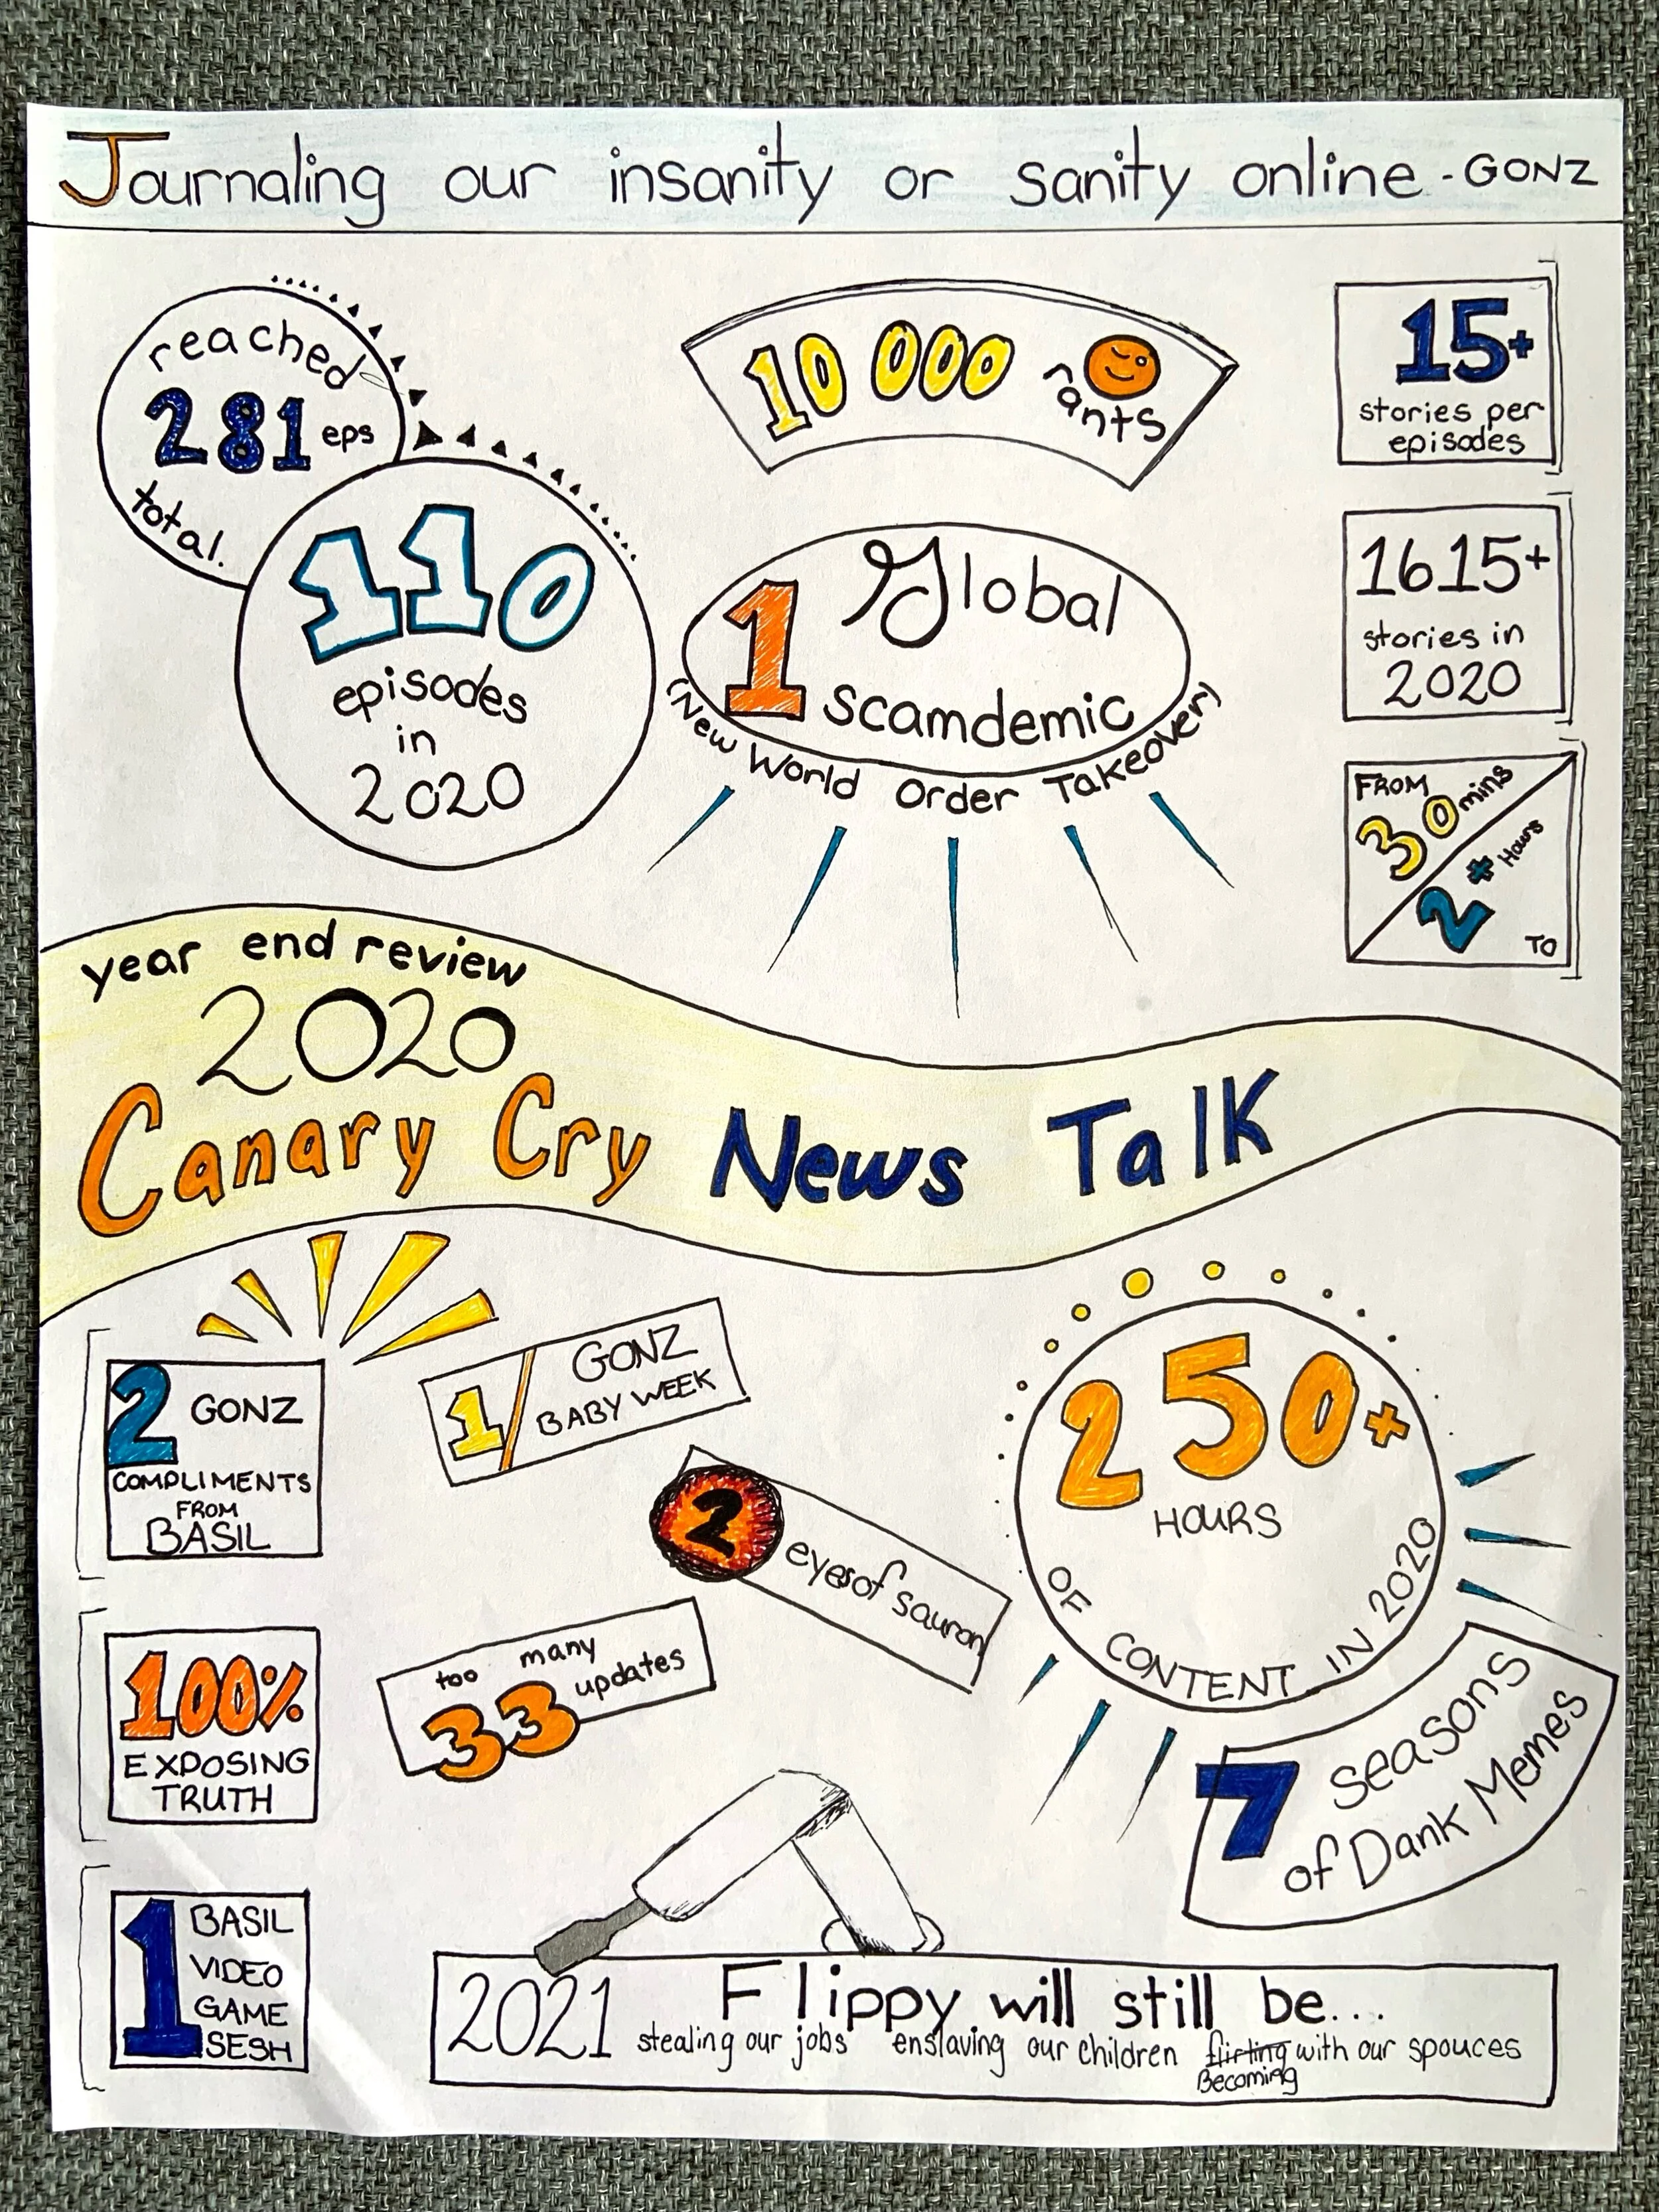 Journaling our insanity or sanity online - GONZ
reached
281 eps
total.
110
episodes
in
2020
10 000 rants
1 Global
Scamdemic
(New World Order Takeover)
15+
stories per
episodes
1615+
stories in
2020
FROM
30 mins
2+ Hours
TO
year end review
2020
Canary Cry News Talk
2 GONZ
COMPLIMENTS
FROM
BASIL
1/ GONZ
BABY WEEK
2 eyes of sauron
250+
HOURS
OF CONTENT IN 2020
100%
EXPOSING
TRUTH
too many
33 updates
7 seasons
of Dank Memes
1 BASIL
VIDEO
GAME
SESH
2021 Flippy will still be...
stealing our jobs enslaving our children flirting with our spouces
Becoming